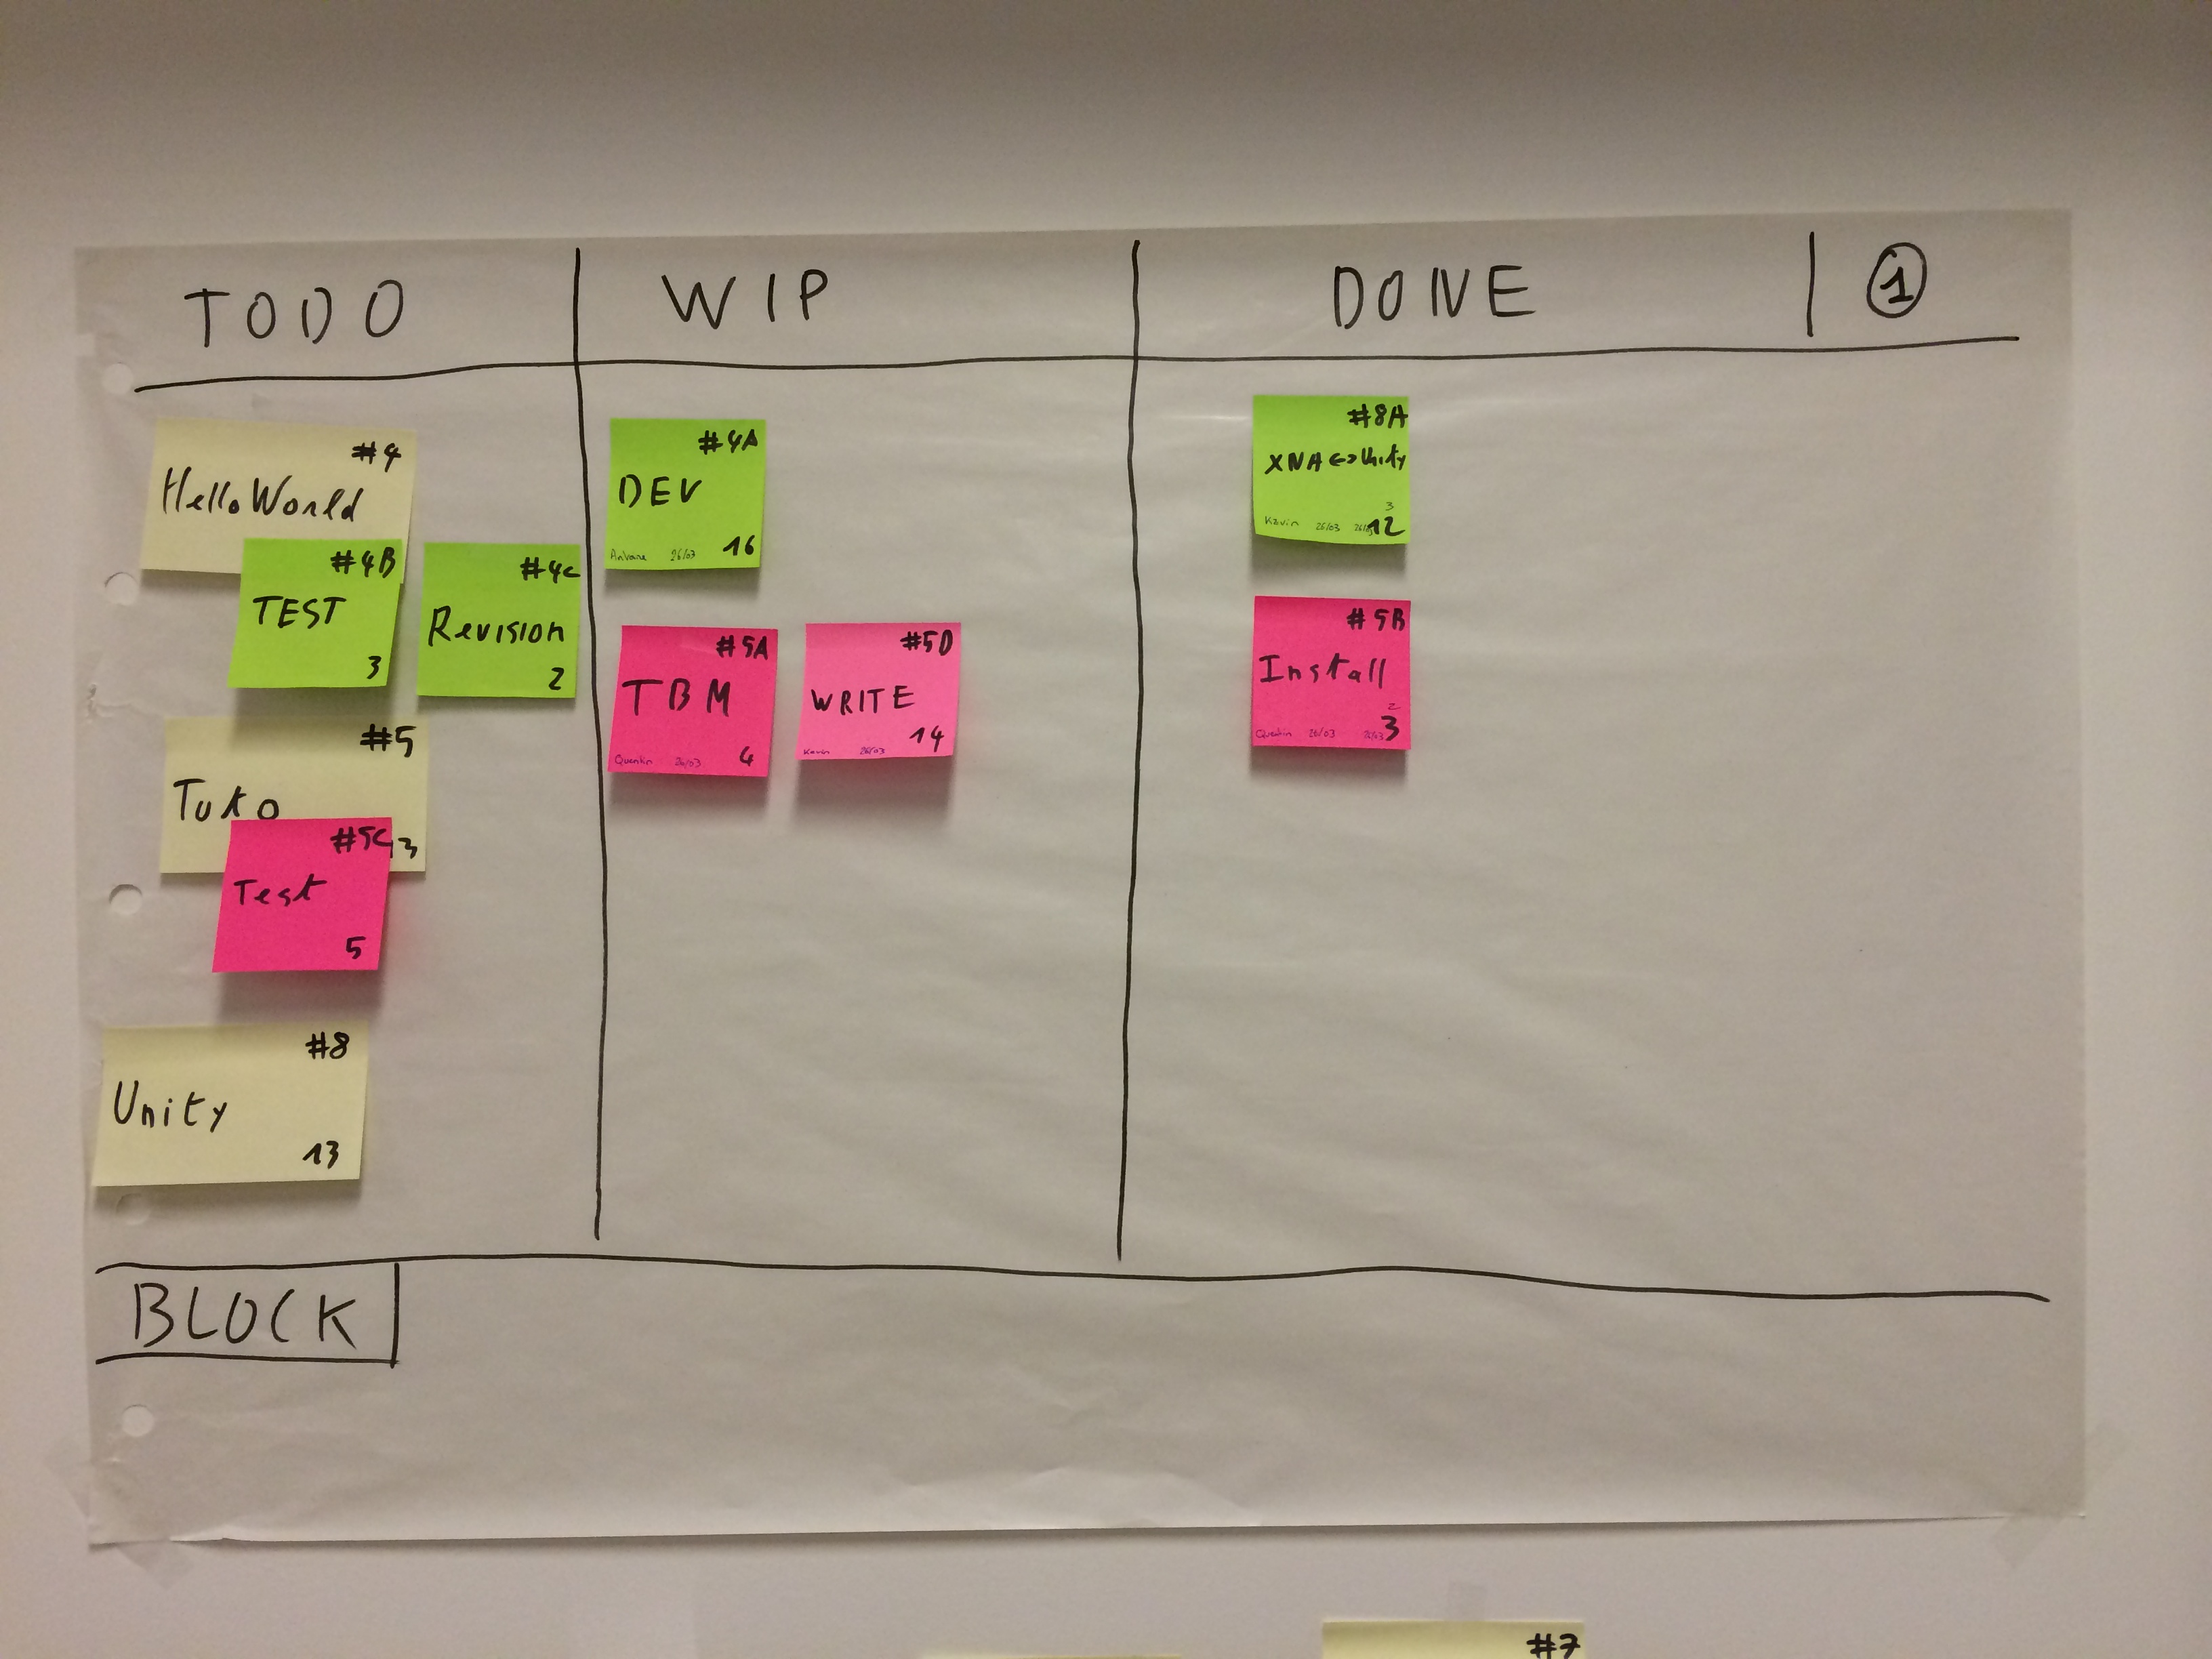 TODO
WIP
DONE
1
#4
Hello World
#4B
TEST
3
#4C
Revision
2
#5
Tuto
13
#5C
Test
5
#8
Unity
13
#4A
DEV
16
Antoine 26/03
#5A
TBM
4
Quentin 26/03
#5D
WRITE
14
Kevin 26/03
#8A
XNA <-> Unity
3
Kevin 26/03
12
#5B
Install
2
Quentin 26/03 26/03
3
BLOCK
#7